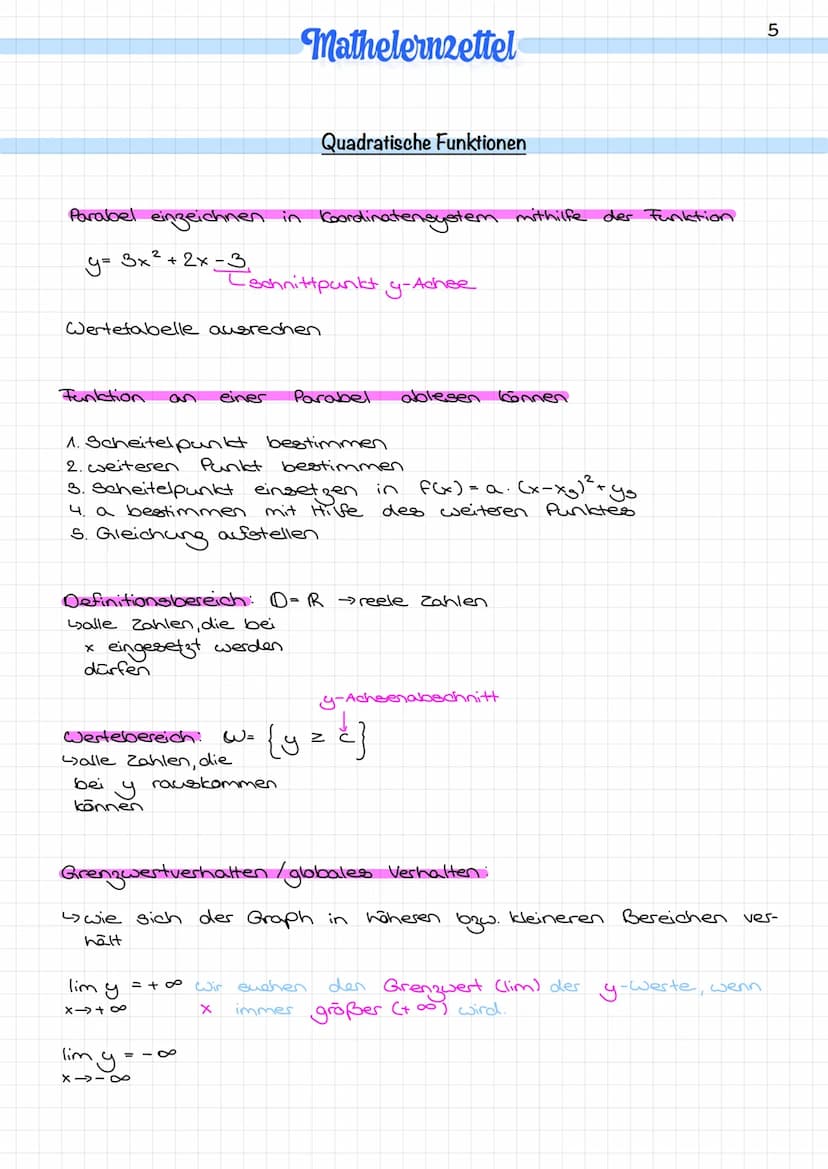 5
Mathelernzettel
Quadratische Funktionen
Parabel einzeichnen in Koordinatensystem mithilfe der Funktion
y= 3x² + 2x - 3
Schnittpunkt y-Achse
Wertetabelle ausrechen
Funktion an einer Parabel ablesen können
1. Scheitelpunkt bestimmen
2. weiteren Punkt bestimmen
3. Scheitelpunkt einsetzen in f(x) = a · (x-xs)² + ys
4. a bestimmen mit Hilfe des weiteren Punktes
5. Gleichung aufstellen
Definitionsbereich: D= ℝ → reele Zahlen
↳ alle Zahlen, die bei
x eingesetzt werden
dürfen
y-Achsenabschnitt
Wertebereich: W= {y ≥ c}
↳ alle Zahlen, die
bei y rauskommen
können
Grenzwertverhalten / globales Verhalten:
↳ wie sich der Graph in höheren bzw. kleineren Bereichen ver-
hält
lim y = + ∞ wir suchen den Grenzwert (lim) der y-Werte, wenn
x → + ∞ x immer größer (+ ∞) wird.
lim y = - ∞
x → - ∞